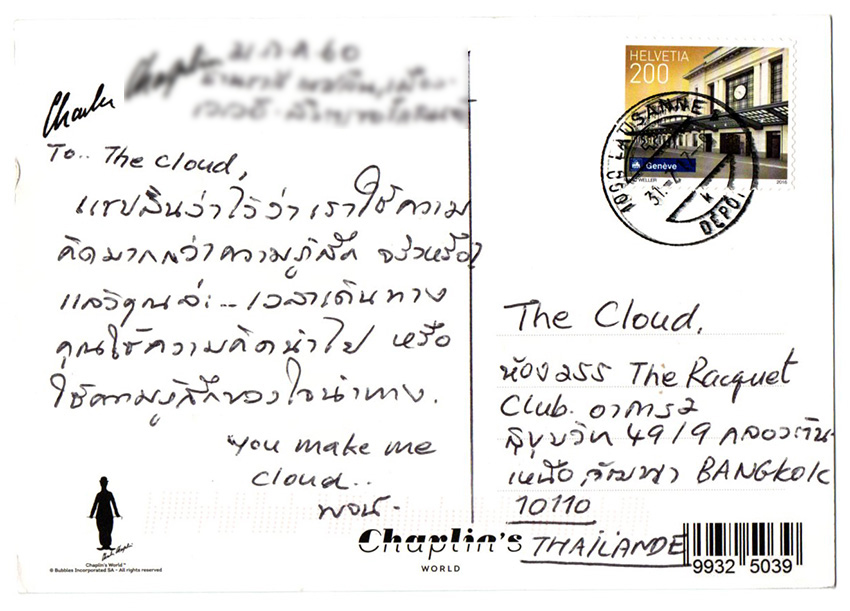 Charles Chaplin
To.. The cloud,
แชปลินว่าไว้ว่า เราใช้ความ
คิดมากกว่าความรู้สึก จริงหรือ?
แล้วคุณล่ะ... เวลาเดินทาง
คุณใช้ความคิดนำไป หรือ
ใช้ความรู้สึกของใจนำทาง.
You make me
cloud..
พจน์-
Chaplin's World™
© Bubbles Incorporated SA - All rights reserved
Chaplin's
WORLD
HELVETIA
200
Genève
WELLER
2016
1000 LAUSANNE
DÉPÔT
The Cloud.
ห้อง 255 The Racquet
Club. อาคาร 2
สุขุมวิท 49/9 คลองตัน-
เหนือ, วัฒนา BANGKOK
10110
THAILANDE
9932 5039